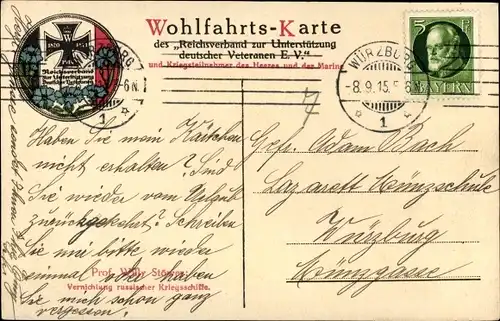 Wohlfahrts-Karte
des „Reichsverband zur Unterstützung
deutscher Veteranen E. V."
und Kriegsteilnehmer des Heeres und der Marine
Reichsverband
zur Unterstützung
Deutscher Veteranen
WÜRZBURG
-8.9.15. 6N.
1
5
BAYERN
Haben Sie mein Kärtchen
nicht erhalten? Sind
Sie wieder vom Urlaub
zurückgekehrt? Schreiben
Sie mir bitte wieder
einmal oder haben
Sie mich schon ganz
vergessen!
Prof. Willy Stöwer:
Vernichtung russischer Kriegsschiffe.
Gefr. Adam Bach
Lazarett Münzschule
Würzburg
Münzgasse